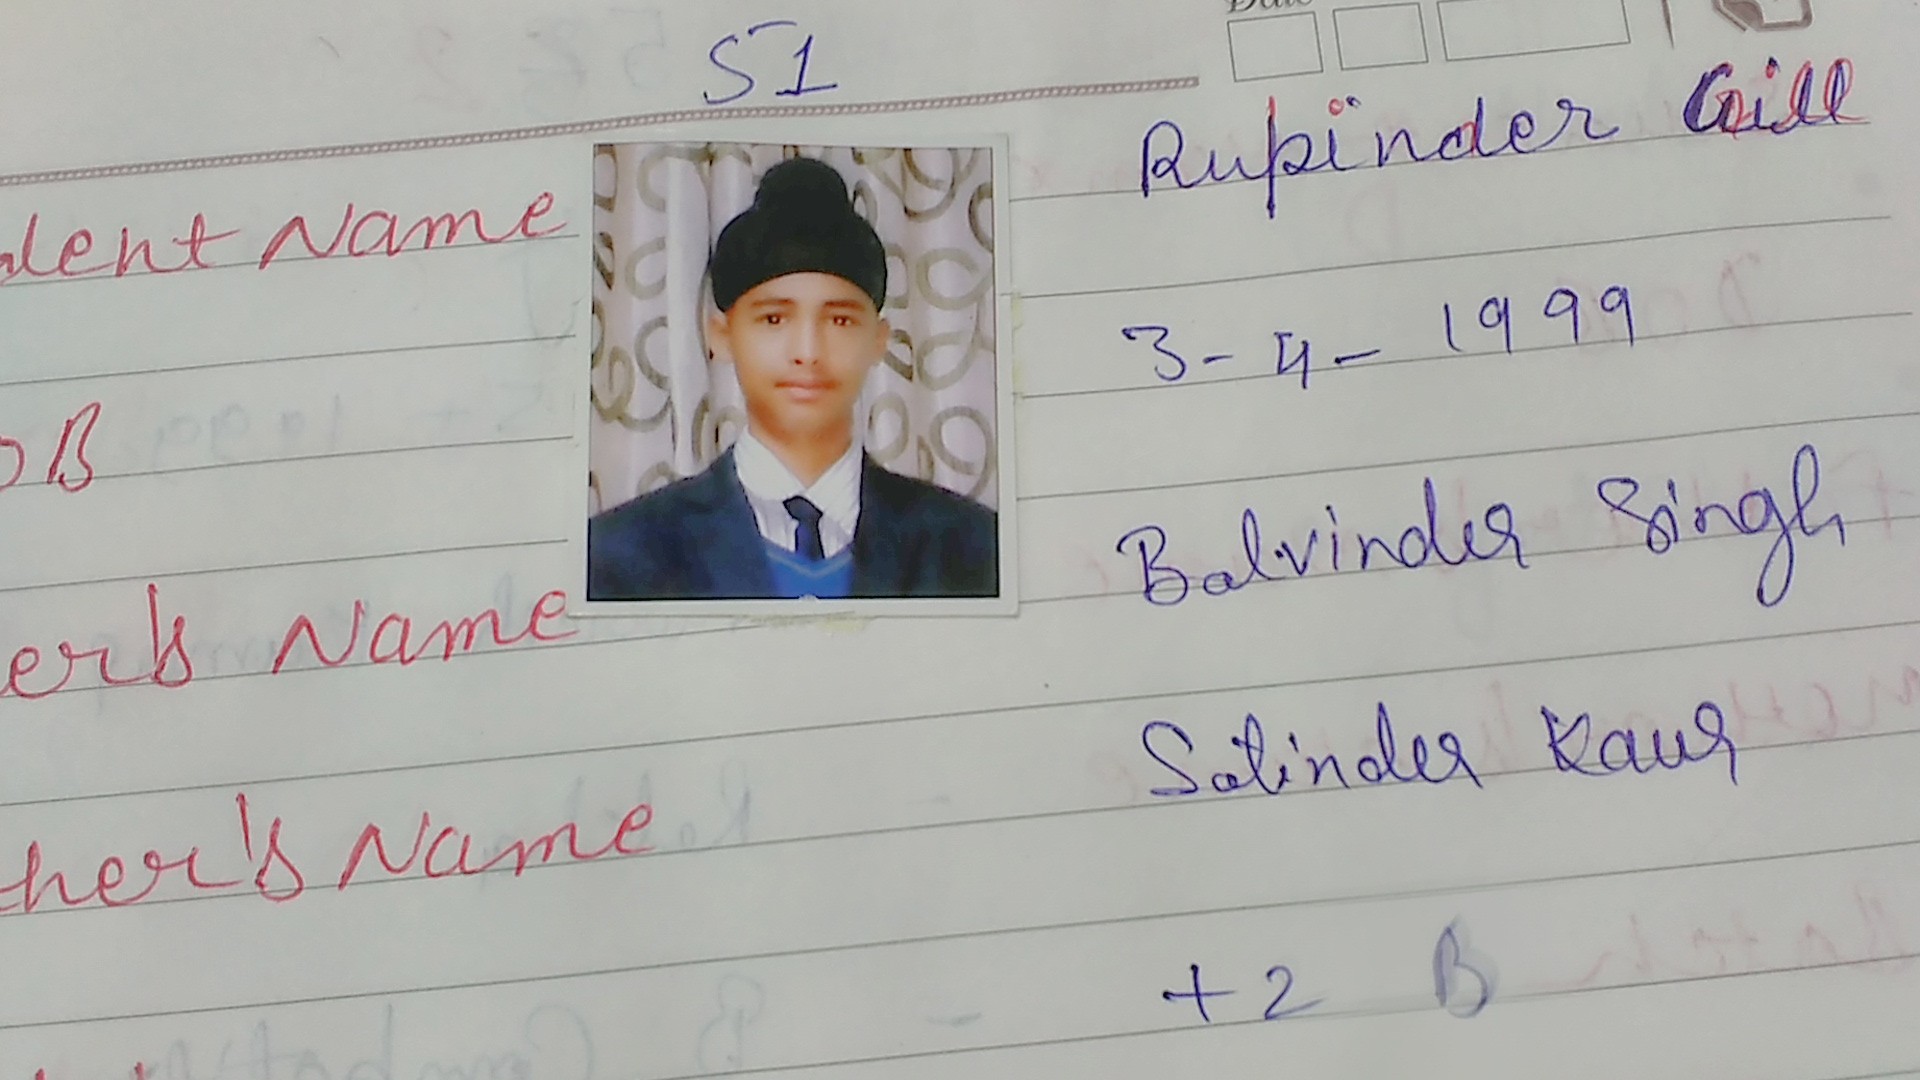 Date
51
Student Name Rupinder Gill
DOB 3-4-1999
er's Name Balvinder Singh
ther's Name Satinder Kaur
+2 B